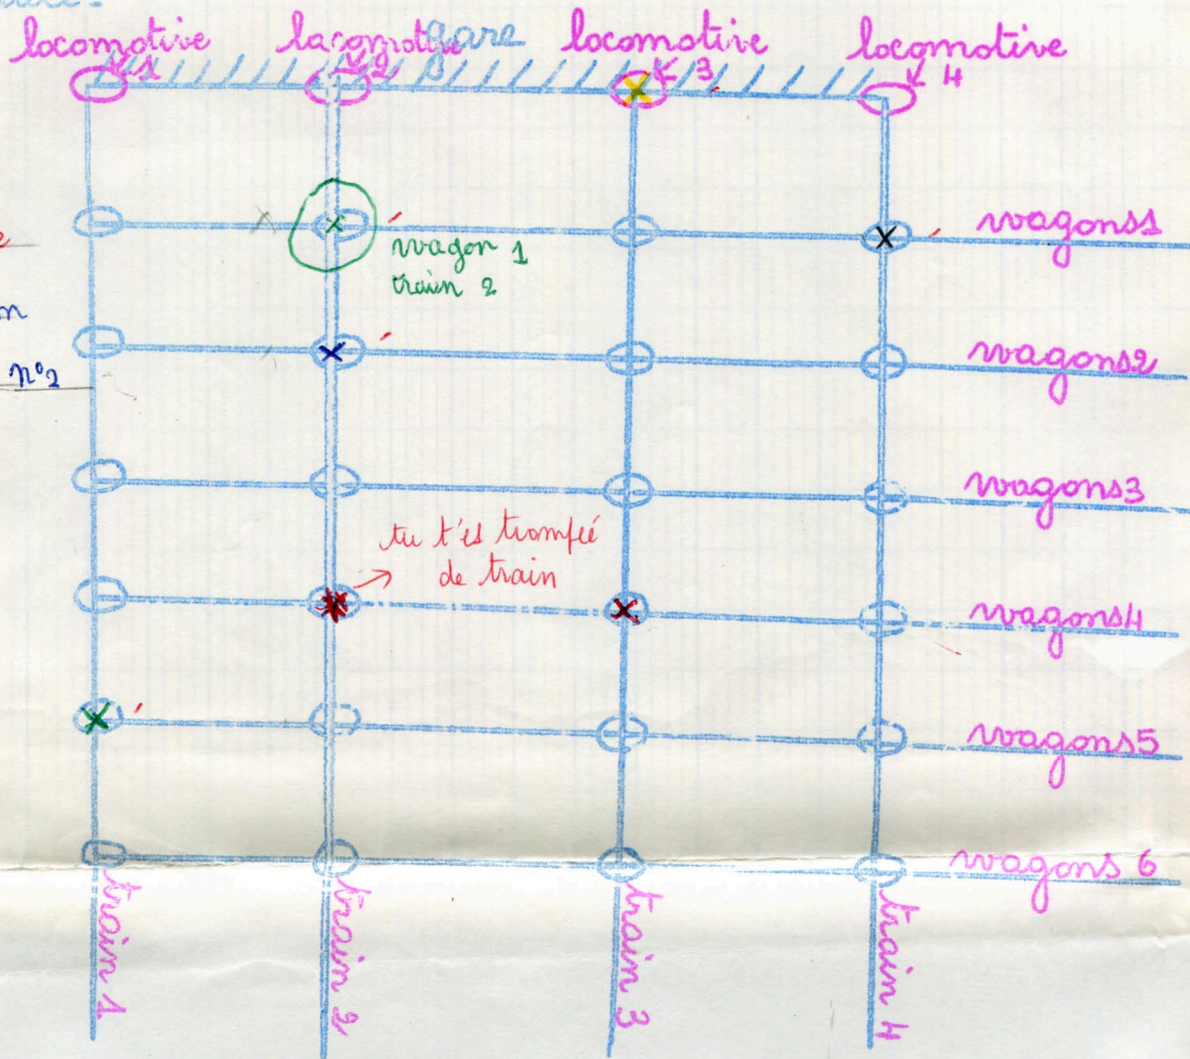 gare
locomotive 1
locomotive 2
locomotive 3
locomotive 4
wagons1
wagon 1
train 2
wagons2
n°2
wagons3
tu t'es trompée
de train
wagons4
wagons5
wagons 6
train 1
train 2
train 3
train 4